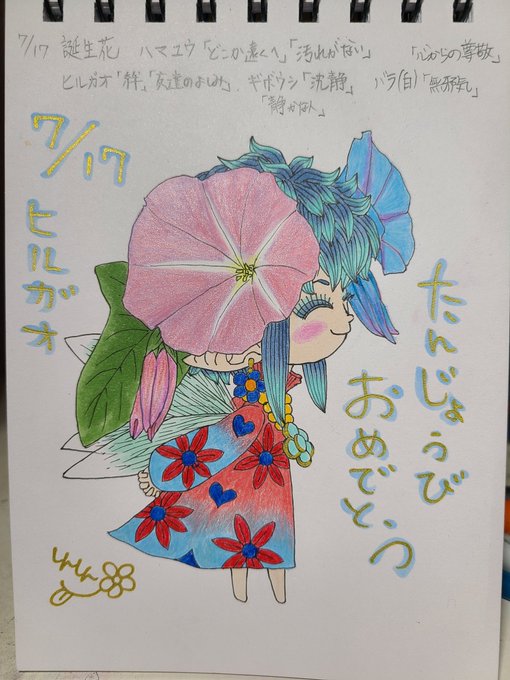 7/17 誕生花 ハマユウ「どこか遠くへ」「汚れがない」 「心からの尊敬」
ヒルガオ「絆」「友達のよしみ」 ギボウシ「沈静」 バラ(白)「無邪気」
「静かな人」
7/17
ヒルガオ
たんじょうび
おめでとう